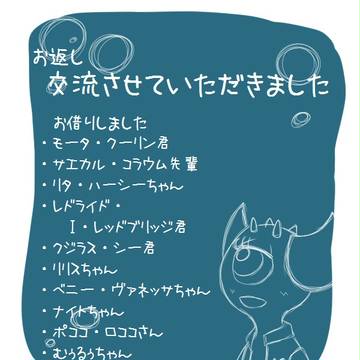 お返し
交流させていただきました
お借りしました
・モータ・クーリン君
・サエカル・コラウム先輩
・リタ・ハーシーちゃん
・レドライド・
I・レッドブリッジ君
・クジラス・シー君
・リリスちゃん
・ベニー・ヴァネッサちゃん
・ナイトちゃん
・ポココ・ロココさん
・むぅるぅちゃん